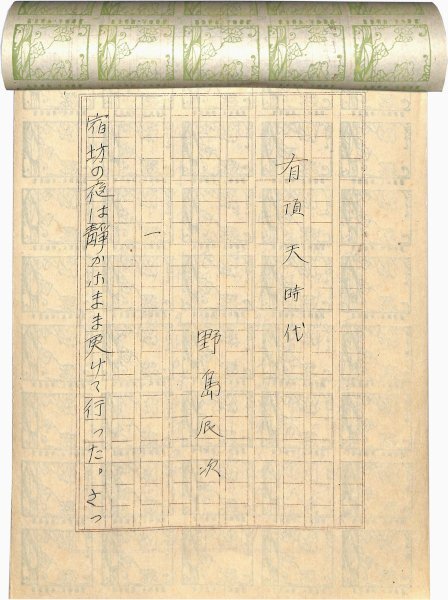 有頂天時代
野島辰次
一
宿坊の夜は静かなまま更けて行った。さっ